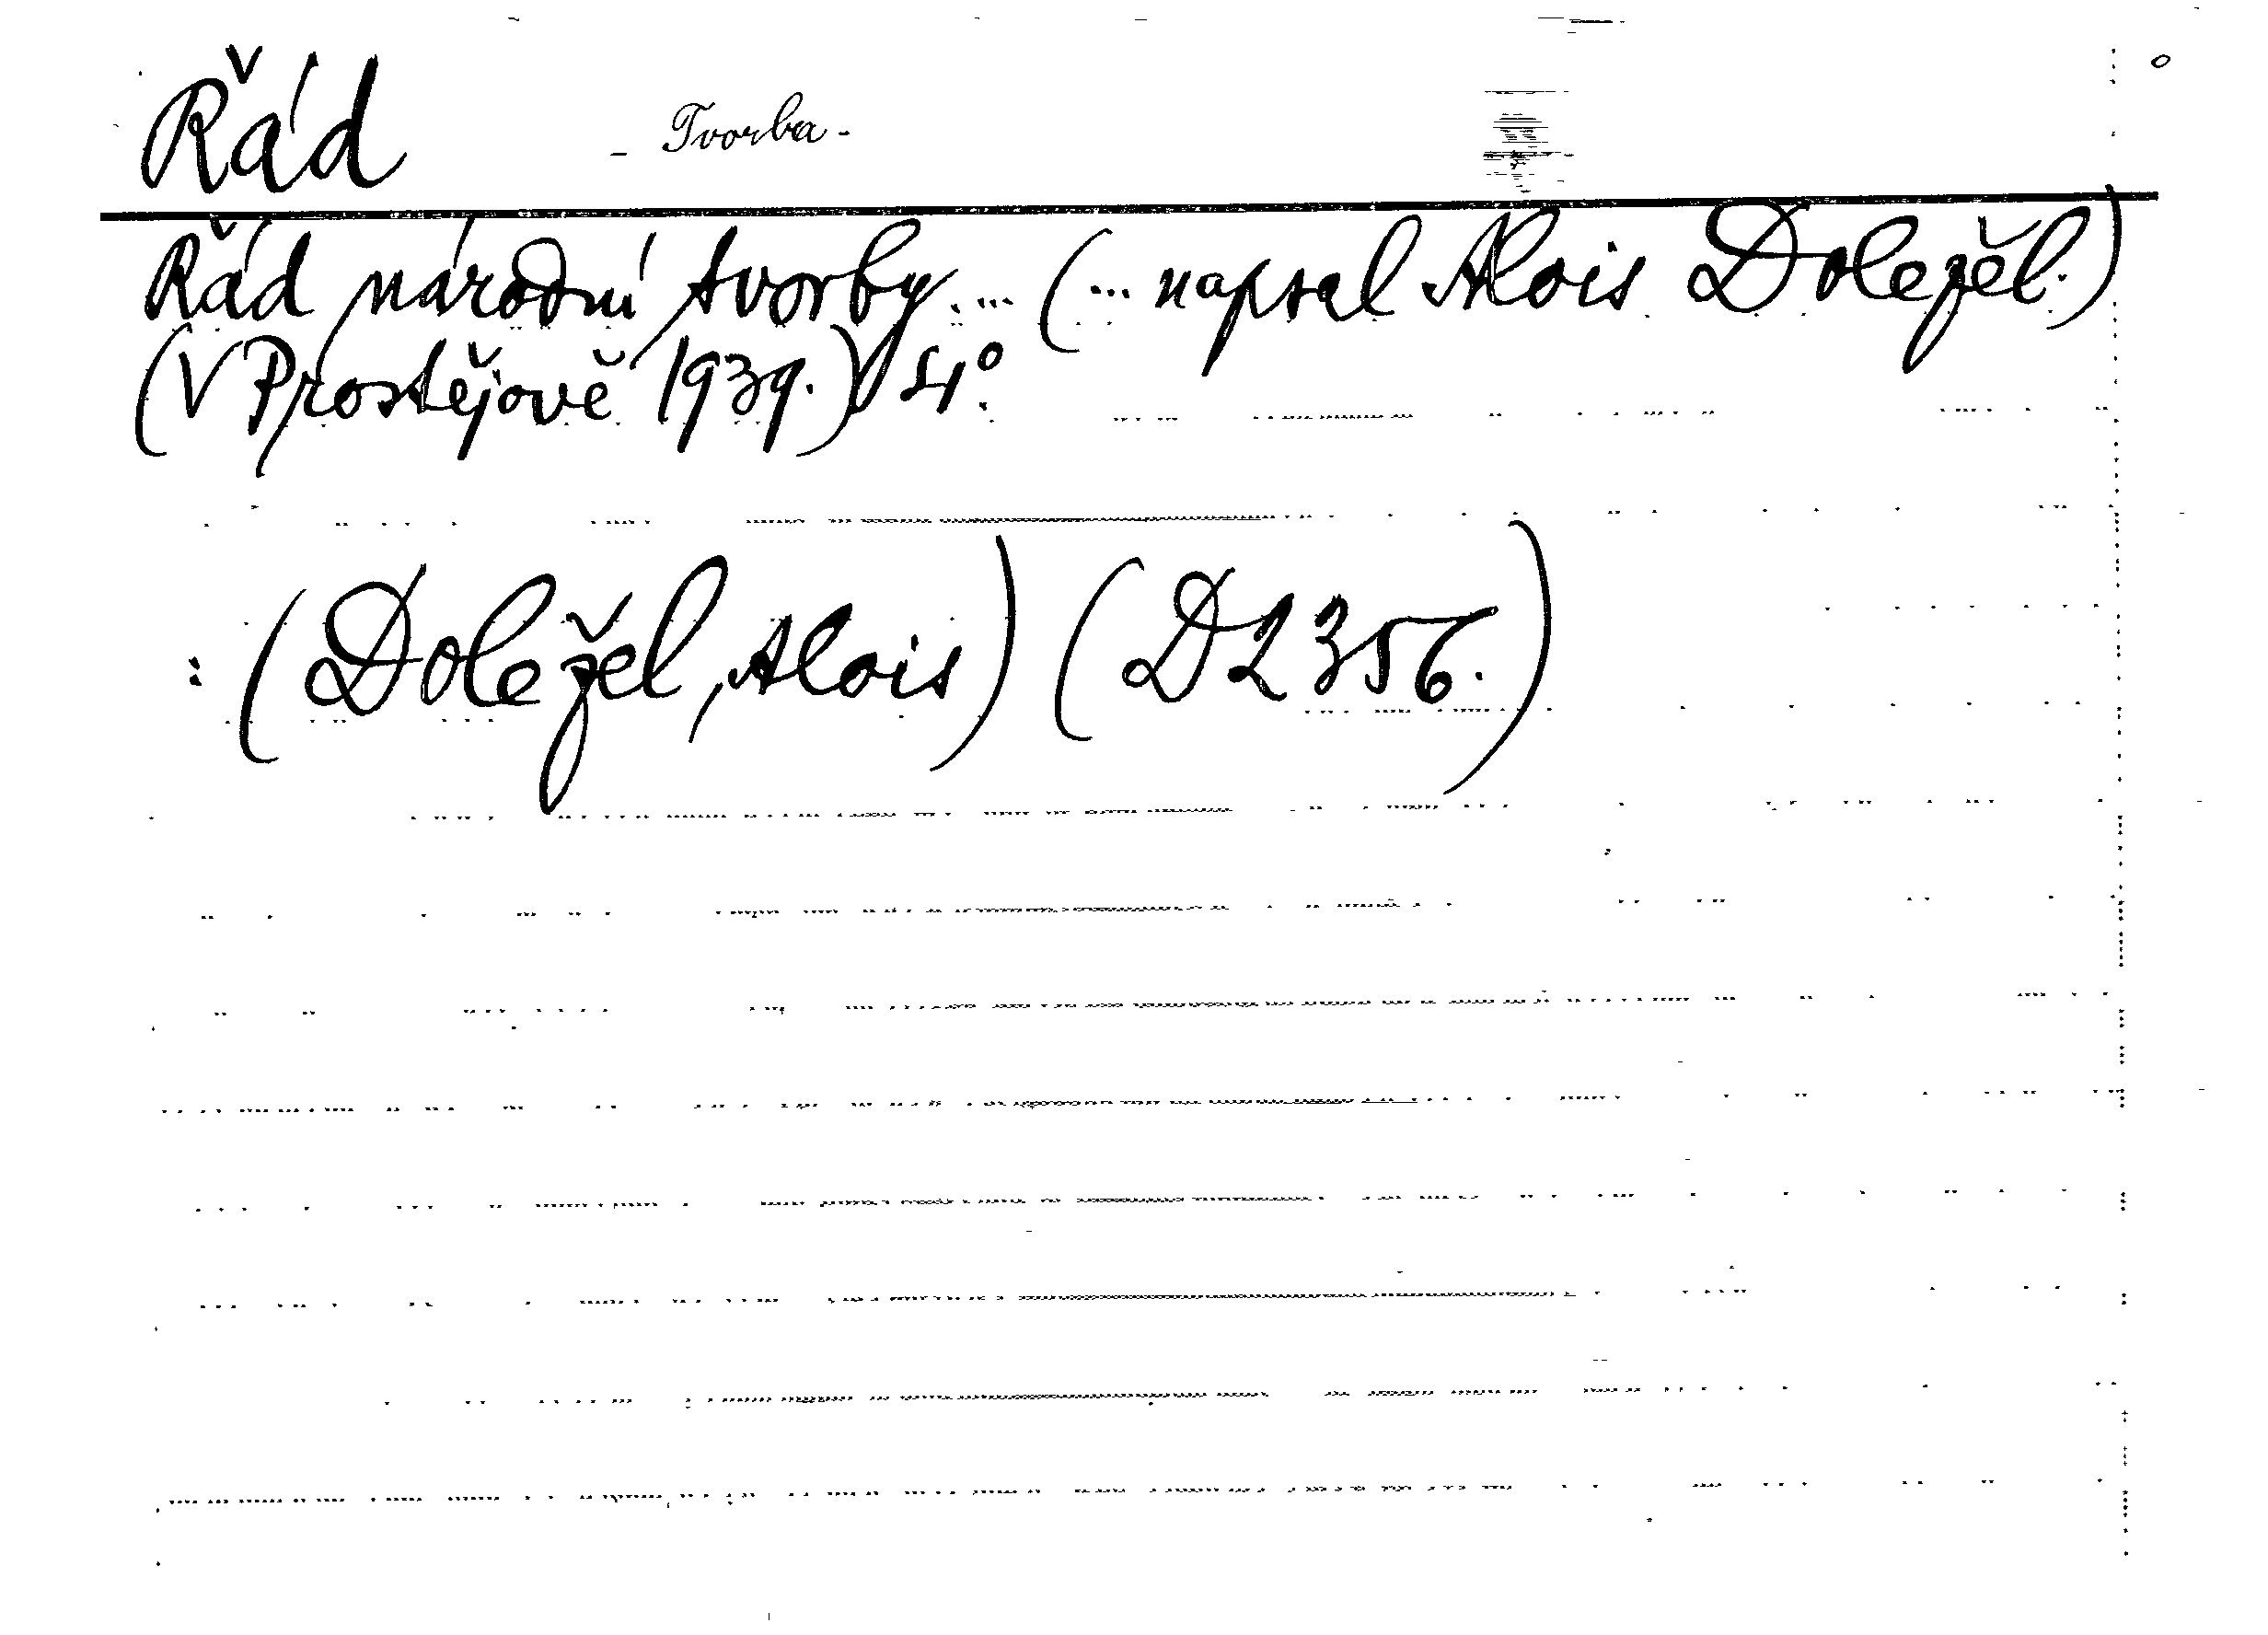 Řád - Tvorba -
Řád národní tvorby... (... napsal Alois Doležel.)
(V Prostějově 1939.) 4°.
: (Doležel, Alois) (D2356.)